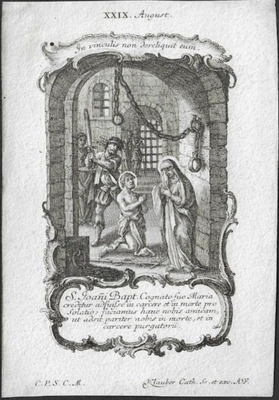 XXIX. August.
In vinculis non dereliquit eum
S. Joan̄ Bapt. Cognato suo Maria
creditur adfuisse in carcere et in morte pro
Solatio: faciamus hanc nobis amicam,
ut adsit pariter nobis in morte, et in
carcere purgatorii.
C.P.S.C.M. Klauber Cath. Sc. et exc. A.V.